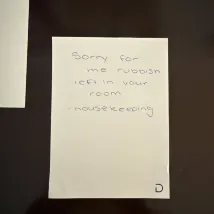 Sorry for
me rubbish
left in your
room
-housekeeping
D